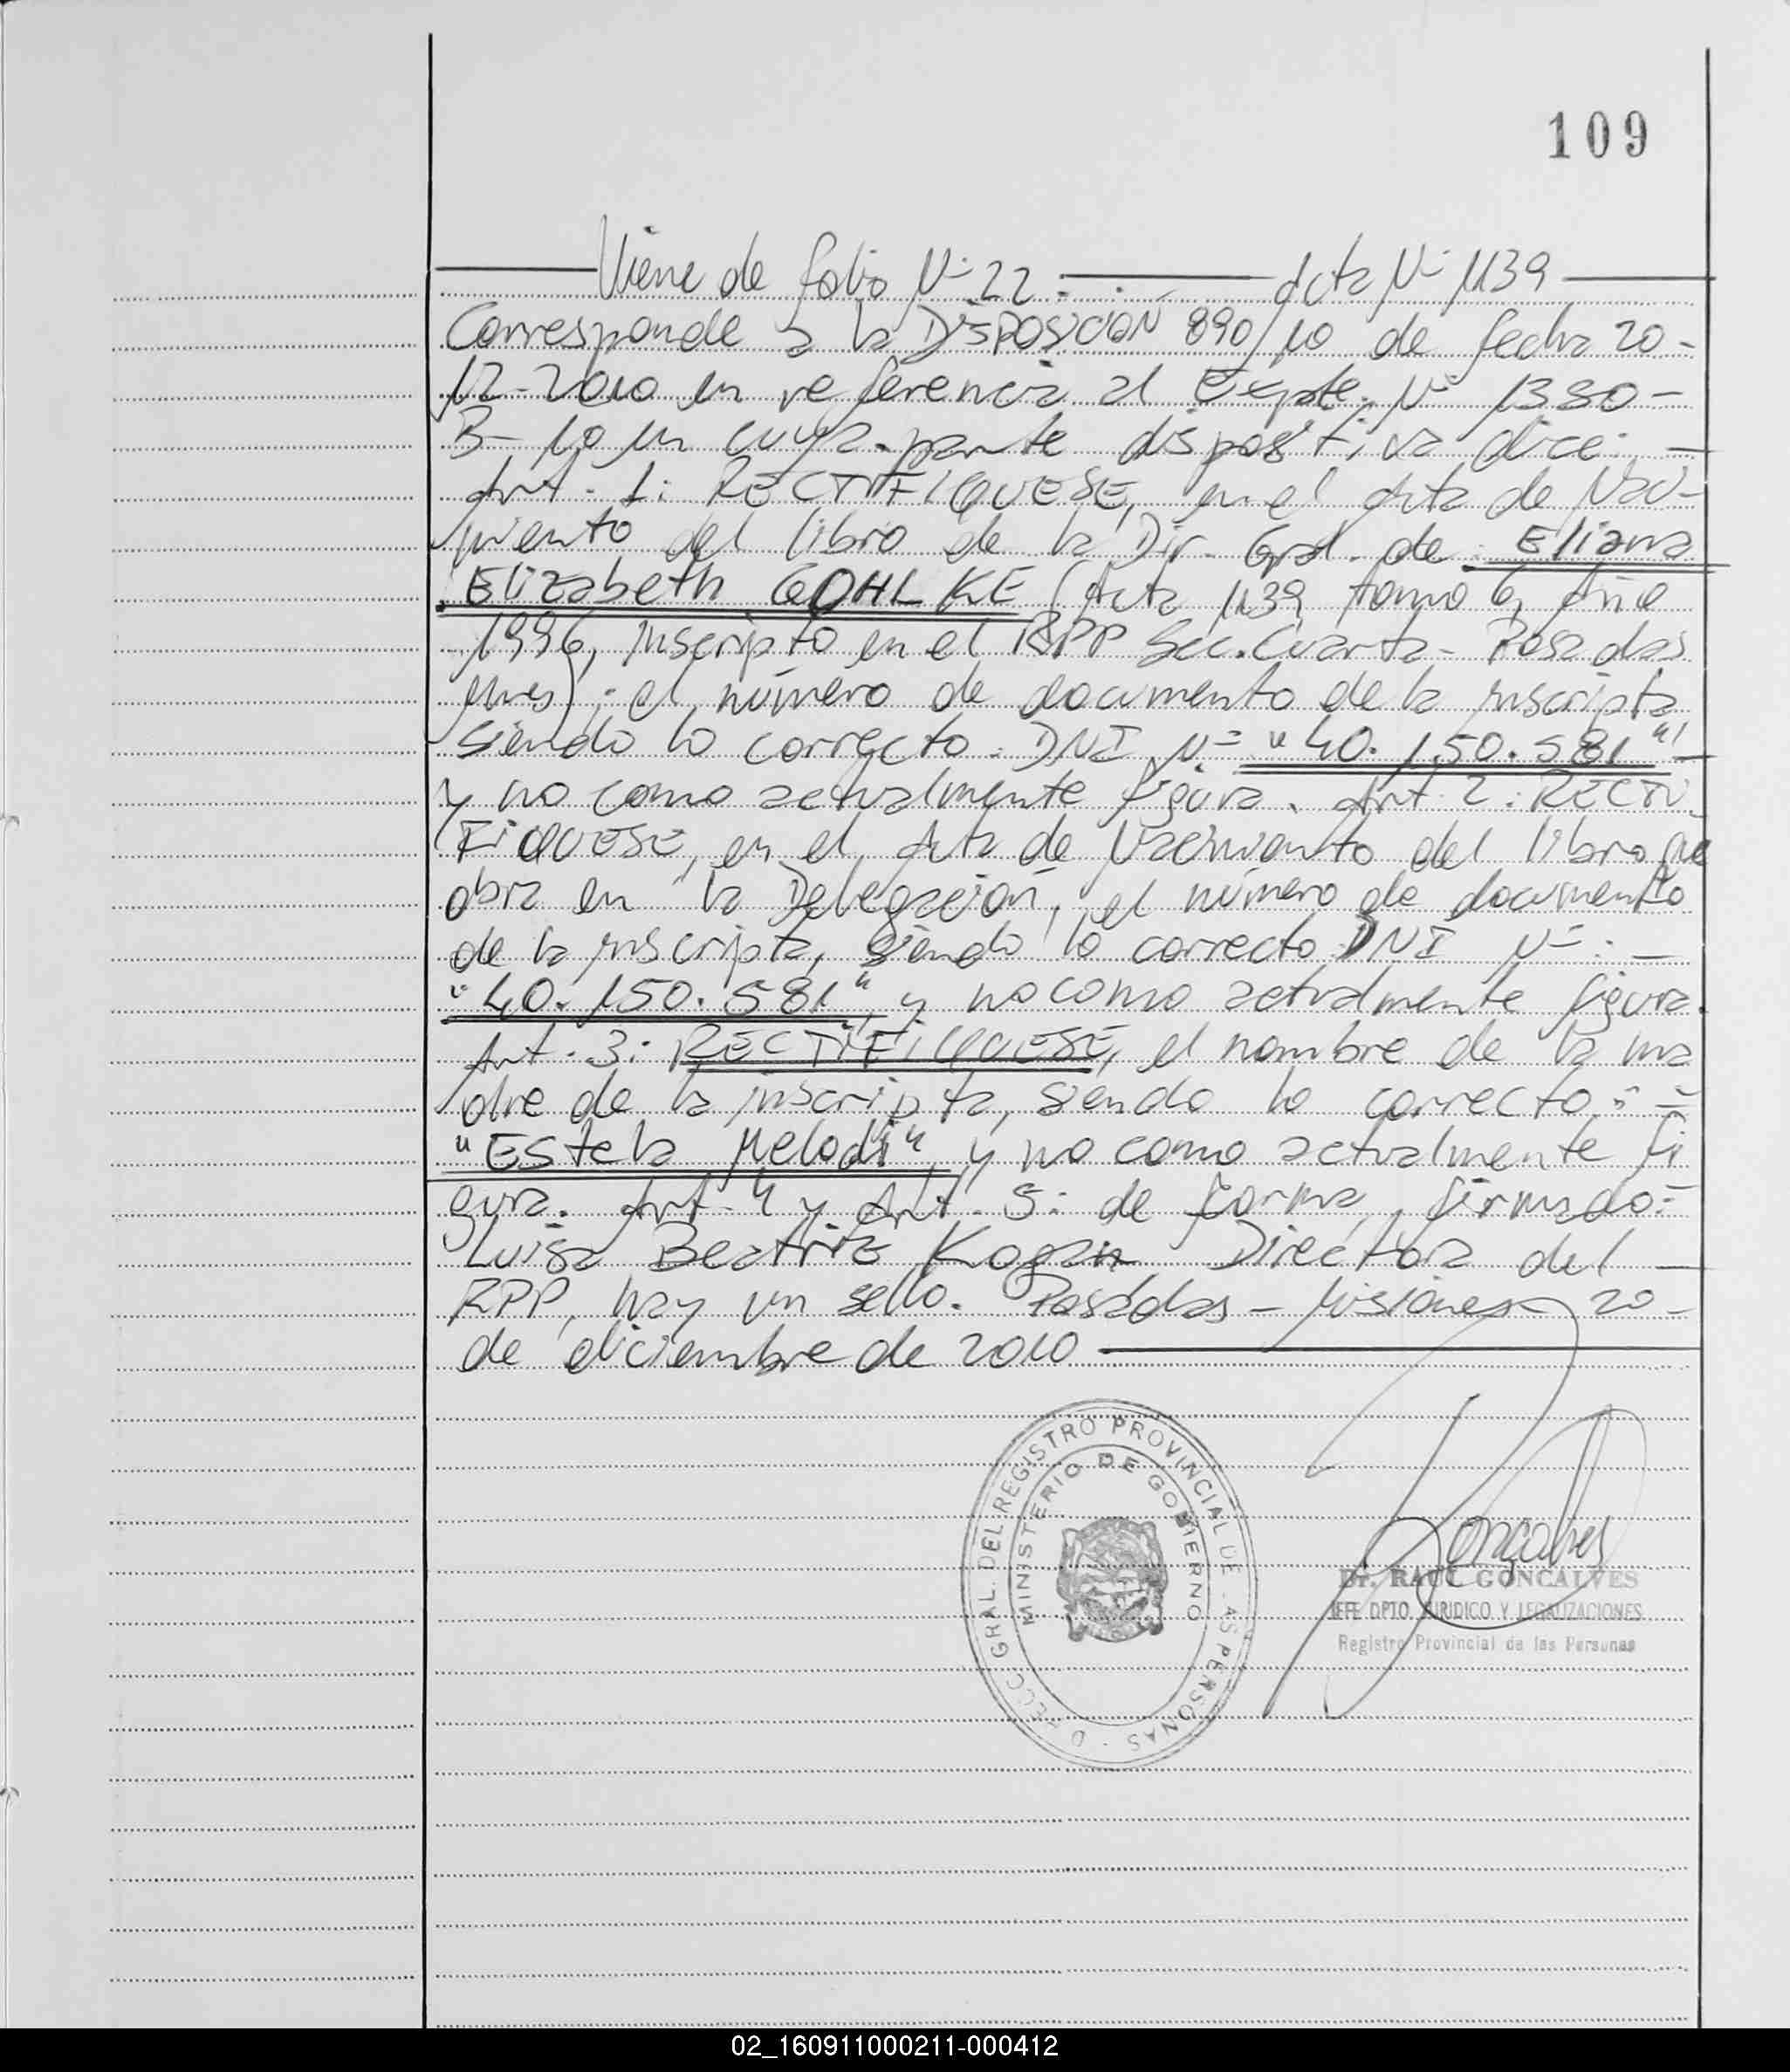 109
Viene de folio Nº 22 : . - Acta Nº 1139
Corresponde a la DISPOSICION 890/10 de fecha 20-
12-2010 en referencia al Expte. Nº 1380-
B-10 en cuya parte dispositiva dice: -
Art. 1: RECTIFIQUESE, en el Acta de Naci-
miento del libro de la Dir. Gral. de: Eliana
Elizabeth GOHLKE (Acta 1139 tomo 6, Año
1996, inscripto en el RPP Sec. Cuarta - Posadas
Mnes); el número de documento de la inscripta
siendo lo correcto: DNI Nº "40.150.581" -
y no como actualmente figura. Art 2: RECTI
FIQUESE, en el Acta de Nacimiento del libro que
obra en la Delegación, el número de documento
de la inscripta, siendo lo correcto DNI Nº: -
"40.150.581", y no como actualmente figura.
Art. 3: RECTIFIQUESE, el nombre de la ma
dre de la inscripta, siendo lo correcto: =
"Estela Melodi", y no como actualmente fi
gura. Art. 4 y Art. 5: de forma, firmado:
Luisa Beatriz Kogan Directora del -
RPP, hay un sello. Posadas - Misiones 20-
de diciembre de 2010
DIRECC GRAL. DEL REGISTRO PROVINCIAL DE LAS PERSONAS
MINISTERIO DE GOBIERNO
Goncalves
Dr. RAUL GONCALVES
JEFE DPTO. JURIDICO Y LEGALIZACIONES
Registro Provincial de las Personas
02_160911000211-000412